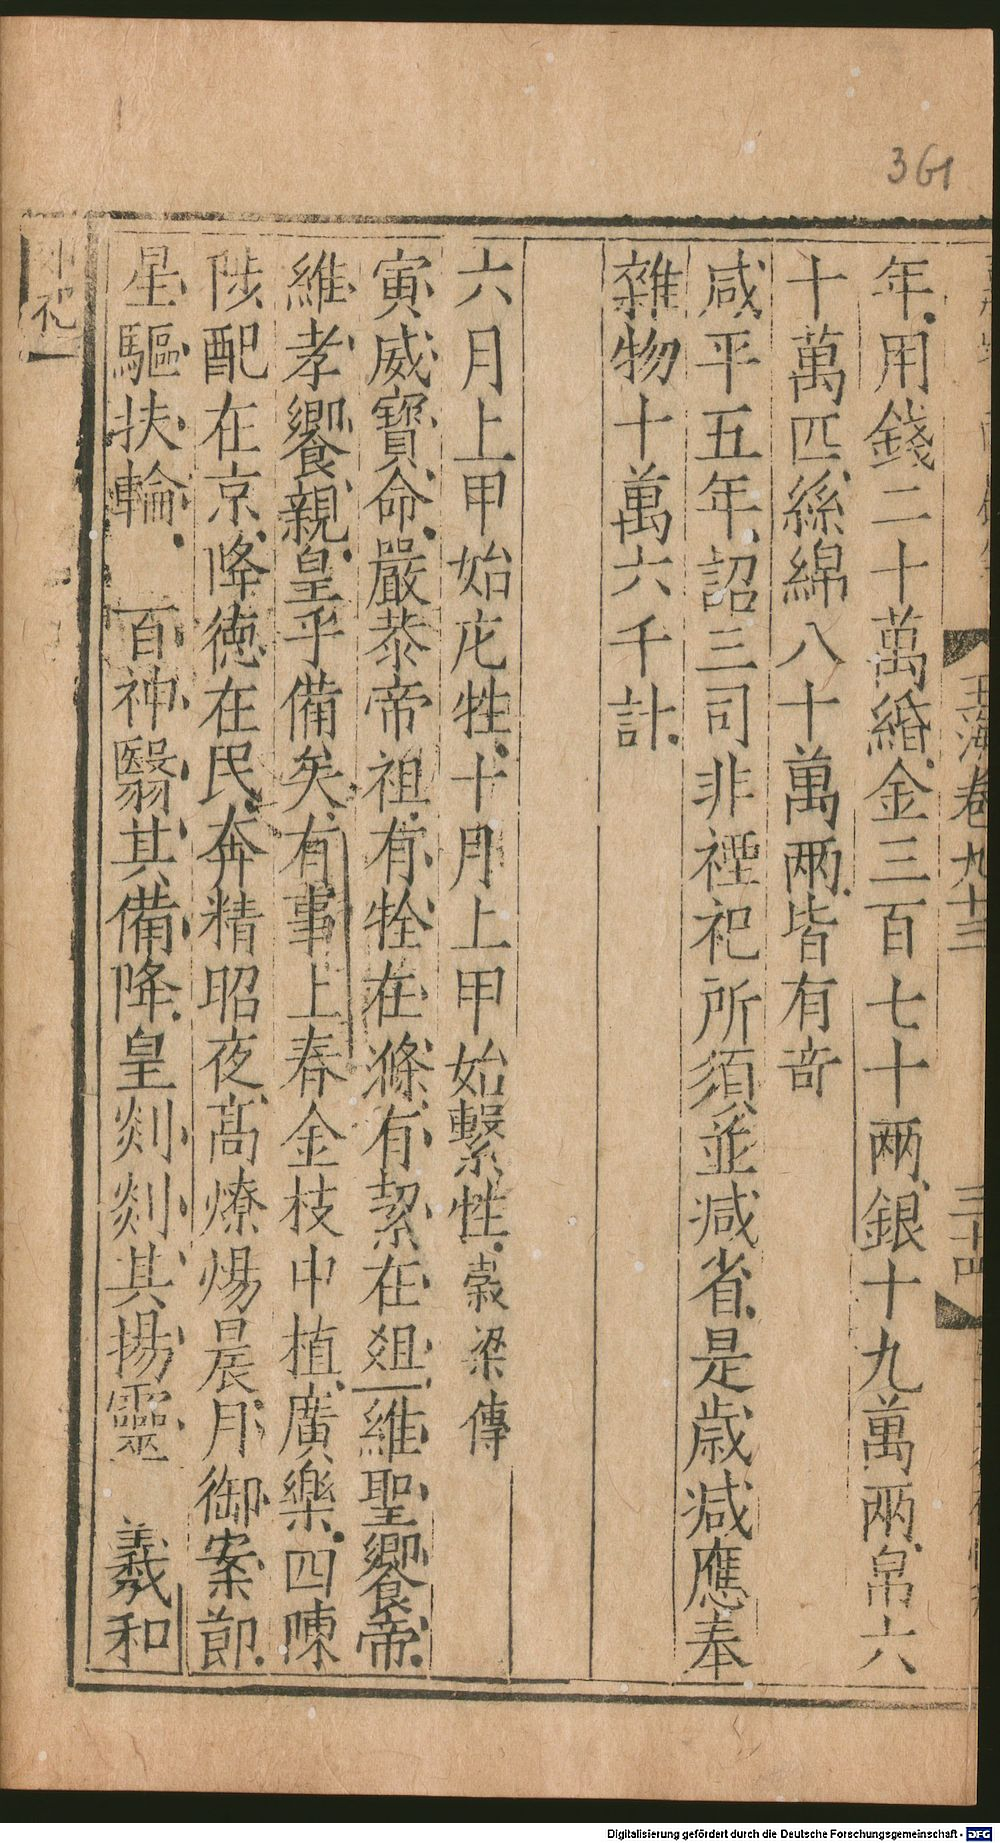 361
玉海卷九十三
三十四
年用錢二十萬緡金三百七十兩銀十九萬兩帛六
十萬匹絲綿八十萬兩皆有奇
咸平五年詔三司非禋祀所須並減省是歲減應奉
雜物十萬六千計
六月上甲始庀牲十月上甲始繫牲穀梁傳
寅威寶命嚴恭帝祖有牷在滌有絜在俎維聖饗帝
維孝饗親皇乎備矣有事上春金枝中植廣樂四陳
陟配在京降德在民奔精昭夜高燎煬晨月御案節
星驅扶輪 百神翳其備降皇剡剡其揚靈 羲和
郊祀一
Digitalisierung gefördert durch die Deutsche Forschungsgemeinschaft - DFG